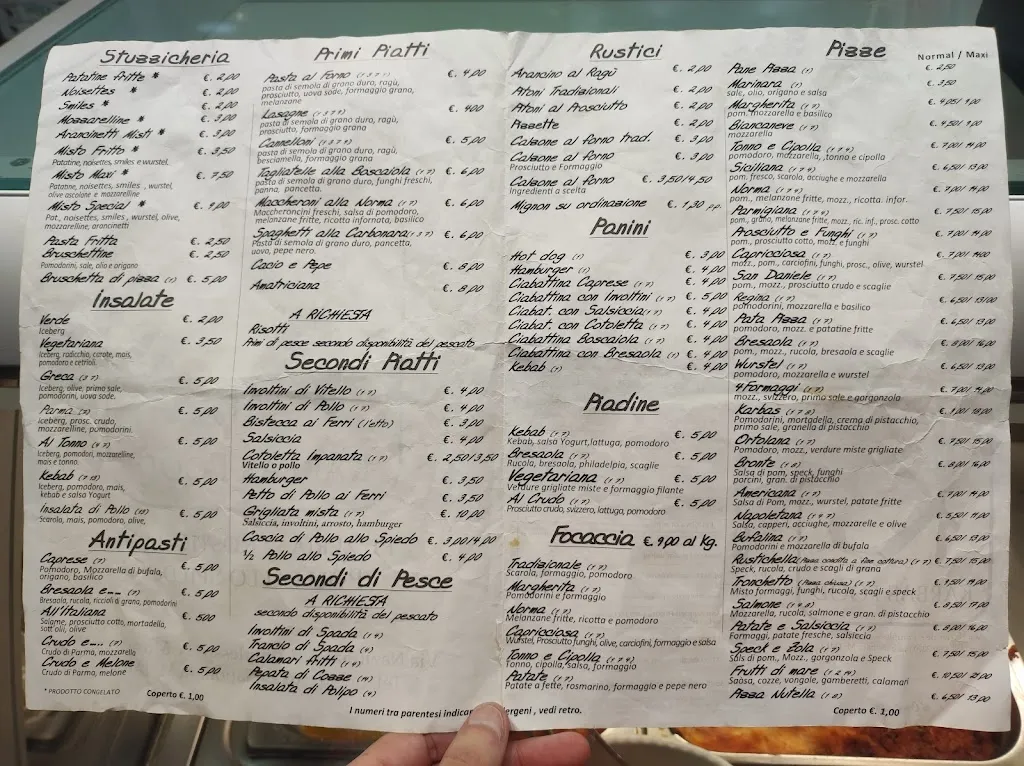 Stuzzicheria
Patatine fritte * €. 2,00
Noisettes * €. 2,00
Smiles * €. 2,00
Mozzarelline * €. 3,00
Arancinetti Misti * €. 3,00
Misto Fritto * €. 3,50
Patatine, noisettes, smiles e wurstel.
Misto Maxi * €. 7,50
Patatine, noisettes, smiles , wurstel,
olive ascolane e mozzarelline
Misto Special * €. 9,00
Pat., noisettes, smiles , wurstel, olive,
mozzarelline, arancinetti
Pasta Fritta €. 2,50
Bruschettine €. 2,50
Pomodorini, sale, olio e origano
Bruschetta di pizza €. 5,00
Insalate
Verde €. 2,00
Iceberg
Vegetariana €. 3,50
Iceberg, radicchio, carote, mais,
pomodoro e cetrioli.
Greca €. 5,00
Iceberg, olive, primo sale,
pomodorini, uova sode.
Parma (7) €. 5,00
Iceberg, prosc. crudo,
mozzarelline, pomodorini.
Al Tonno (4 7) €. 5,00
Iceberg, pomodori, mozzarelline,
mais e tonno.
Kebab €. 5,00
Iceberg, pomodoro, mais,
kebab e salsa Yogurt
Insalata di Pollo €. 5,00
Scarola, mais, pomodoro, olive,
Antipasti
Caprese (7) €. 5,00
Pomodoro, Mozzarella di bufala,
origano, basilico
Bresaola e... (7) €. 5,00
Bresaola, rucola, riccioli di grana, pomodorini
All'italiana €. 500
Salame, prosciutto cotto, mortadella,
sott'olii, olive
Crudo e.... (7) €. 5,00
Crudo di Parma, mozzarella
Crudo e Melone €. 5,00
Crudo di Parma, melone
* PRODOTTO CONGELATO Coperto €. 1,00
Primi Piatti
Pasta al Forno (1 3 7) €. 4,00
pasta di semola di grano duro, ragù,
prosciutto, uova sode, formaggio grana,
melanzane
Lasagne (1 3 7) €. 400
pasta di semola di grano duro, ragù,
prosciutto, formaggio grana
Cannelloni (1 3 7) €. 5,00
pasta di semola di grano duro, ragù,
besciamella, formaggio grana
Tagliatelle alla Boscaiola (1 7) €. 6,00
pasta di semola di grano duro, funghi freschi,
panna, pancetta.
Maccheroni alla Norma (1 7) €. 6,00
Maccheroncini freschi, salsa di pomodoro,
melanzane fritte, ricotta infornata, basilico
Spaghetti alla Carbonara (1 3 7) €. 6,00
Pasta di semola di grano duro, pancetta,
uovo, pepe nero.
Cacio e Pepe €. 8,00
Amatriciana €. 8,00
A RICHIESTA
Risotti
Primi di pesce secondo disponibilità del pescato
Secondi Piatti
Involtini di Vitello (1 7) €. 4,00
Involtini di Pollo (1 7) €. 4,00
Bistecca ai Ferri (1 etto) €. 3,00
Salsiccia €. 4,00
Cotoletta Impanata (1 7) €. 2,50/3,50
Vitello o pollo
Hamburger €. 3,50
Petto di Pollo ai Ferri €. 3,50
Grigliata mista (1 7) €. 10,00
Salsiccia, involtini, arrosto, hamburger
Coscia di Pollo allo Spiedo €. 3,00/4,00
½ Pollo allo Spiedo €. 4,00
Secondi di Pesce
A RICHIESTA
secondo disponibilità del pescato
Involtini di Spada (1 4)
Trancio di Spada (4)
Calamari fritti (1 4)
Pepata di Cozze (14)
Insalata di Polipo (4)
I numeri tra parentesi indicano allergeni , vedi retro.
Rustici
Arancino al Ragù €. 2,00
Pitoni Tradizionali €. 2,00
Pitoni al Prosciutto €. 2,00
Pizzette €. 2,00
Calzone al forno trad. €. 3,00
Calzone al forno €. 3,00
Prosciutto e Formaggio
Calzone al forno €. 3,50/4,50
Ingredienti a scelta
Mignon su ordinazione €. 1,30 p.p.
Panini
Hot dog (1) €. 3,00
Hamburger (1) €. 4,00
Ciabattina Caprese (1 7) €. 4,00
Ciabattina con Involtini (1 7) €. 5,00
Ciabat. con Salsiccia (1 7) €. 4,00
Ciabat. con Cotoletta (1 7) €. 4,00
Ciabattina Boscaiola (1 7) €. 4,00
Ciabattina con Bresaola (1 7) €. 4,00
Kebab (1 7) €. 4,00
Piadine
Kebab (1 7) €. 5,00
Kebab, salsa Yogurt, lattuga, pomodoro
Bresaola (1 7) €. 5,00
Rucola, bresaola, philadelpia, scaglie
Vegetariana (1 7) €. 5,00
Verdure grigliate miste e formaggio filante
Al Crudo (1 7) €. 5,00
Prosciutto crudo, svizzero, lattuga, pomodoro
Focaccia €. 9,00 al Kg.
Tradizionale (1 7)
Scarola, formaggio, pomodoro
Margherita (1 7)
Pomodorini e formaggio
Norma (1 7)
Melanzane fritte, ricotta e pomodoro
Capricciosa (1 7)
Wurstel, Prosciutto funghi, olive, carciofini, formaggio e salsa
Tonno e Cipolla (1 7 4)
Tonno, cipolla, salsa, formaggio
Patate (1 7)
Patate a fette, rosmarino, formaggio e pepe nero
Pizze Normal / Maxi
Pane Pizza (1) €. 2,50
Marinara (1) €. 3,50
sale, olio, origano e salsa
Margherita (1 7) €. 4,05/ 9,00
pom. mozzarella e basilico
Biancaneve (1 7) €. 4,50/ 9,00
mozzarella
Tonno e Cipolla (1 7 4) €. 7,00/ 14,00
pomodoro, mozzarella, tonno e cipolla
Siciliana (1 7 4) €. 6,50/ 13,00
pom. fresco, scarola, acciughe e mozzarella
Norma (1 7) €. 7,00/ 14,00
pom., melanzane fritte, mozz., ricotta. infor.
Parmigiana (1 7 9) €. 7,50/ 15,00
pom., grana, melanzane fritte, mozz., ric. inf., prosc. cotto
Prosciutto e Funghi (1 7) €. 7,00/ 14,00
pom., prosciutto cotto, mozz. e funghi
Capricciosa (1 7) €. 7,00/ 14,00
mozz., pom., carciofini, funghi, prosc., olive, wurstel
San Daniele (1 7) €. 7,50/ 15,00
pom., mozz., prosciutto crudo e scaglie
Regina (1 7) €. 6,50/ 13,00
pomodorini, mozzarella e basilico
Pata Pizza (1 7) €. 6,50/ 13,00
pomodoro, mozz. e patatine fritte
Bresaola (1 7) €. 8,00/ 16,00
pom., mozz., rucola, bresaola e scaglie
Wurstel (1 7) €. 6,50/ 13,00
pomodoro, mozzarella e wurstel
4 Formaggi (1 7) €. 7,00/ 14,00
mozz., svizzero, primo sale e gorgonzola
Karbas (1 7 8) €. 9,00/ 18,00
Pomodorini, mortadella, crema di pistacchio,
primo sale, granella di pistacchio
Ortolana (1 7) €. 7,50/ 15,00
Pomodoro, mozz., verdure miste grigliate
Bronte (1 8) €. 8,00/ 16,00
Salsa di pom, speck, funghi
porcini, gran. di pistacchio
Americana (1 7) €. 7,00/ 14,00
Salsa di Pom, mozz., wurstel, patate fritte
Napoletana (1 4 7) €. 5,50/ 11,00
Salsa, capperi, acciughe, mozzarelle e olive
Bufalina (1 7) €. 6,50/ 13,00
Pomodorini e mozzarella di bufala
Rustichella (Pizza condita a fine cottura) (1 7) €. 7,50/ 15,00
Speck, rucola, crudo e scagli di grana
Tronchetto (Pizza chiusa) (1 7) €. 9,50/ 19,00
Misto formaggi, funghi, rucola, scagli e speck
Salmone (1 8 4) €. 8,50/ 17,00
Mozzarella, rucola, salmone e gran. di pistacchio
Patate e Salsiccia (1 7) €. 8,00/ 16,00
Formaggi, patate fresche, salsiccia
Speck e Zola (1 7) €. 7,50/ 15,00
Sals di pom., Mozz., gorgonzola e Speck
Frutti di mare (1 2 14) €. 10,50/ 21,00
Saosa, cozze, vongole, gamberetti, calamari
Pizza Nutella (1 8) €. 6,50/ 13,00
Coperto €. 1,00